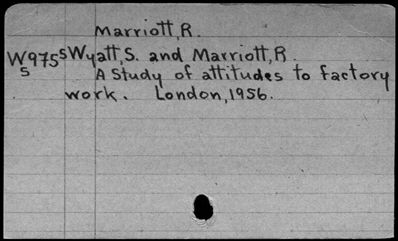 Marriott, R.
W975s Wyatt, S. and Marriott, R.
S
A study of attitudes to factory
work. London, 1956.